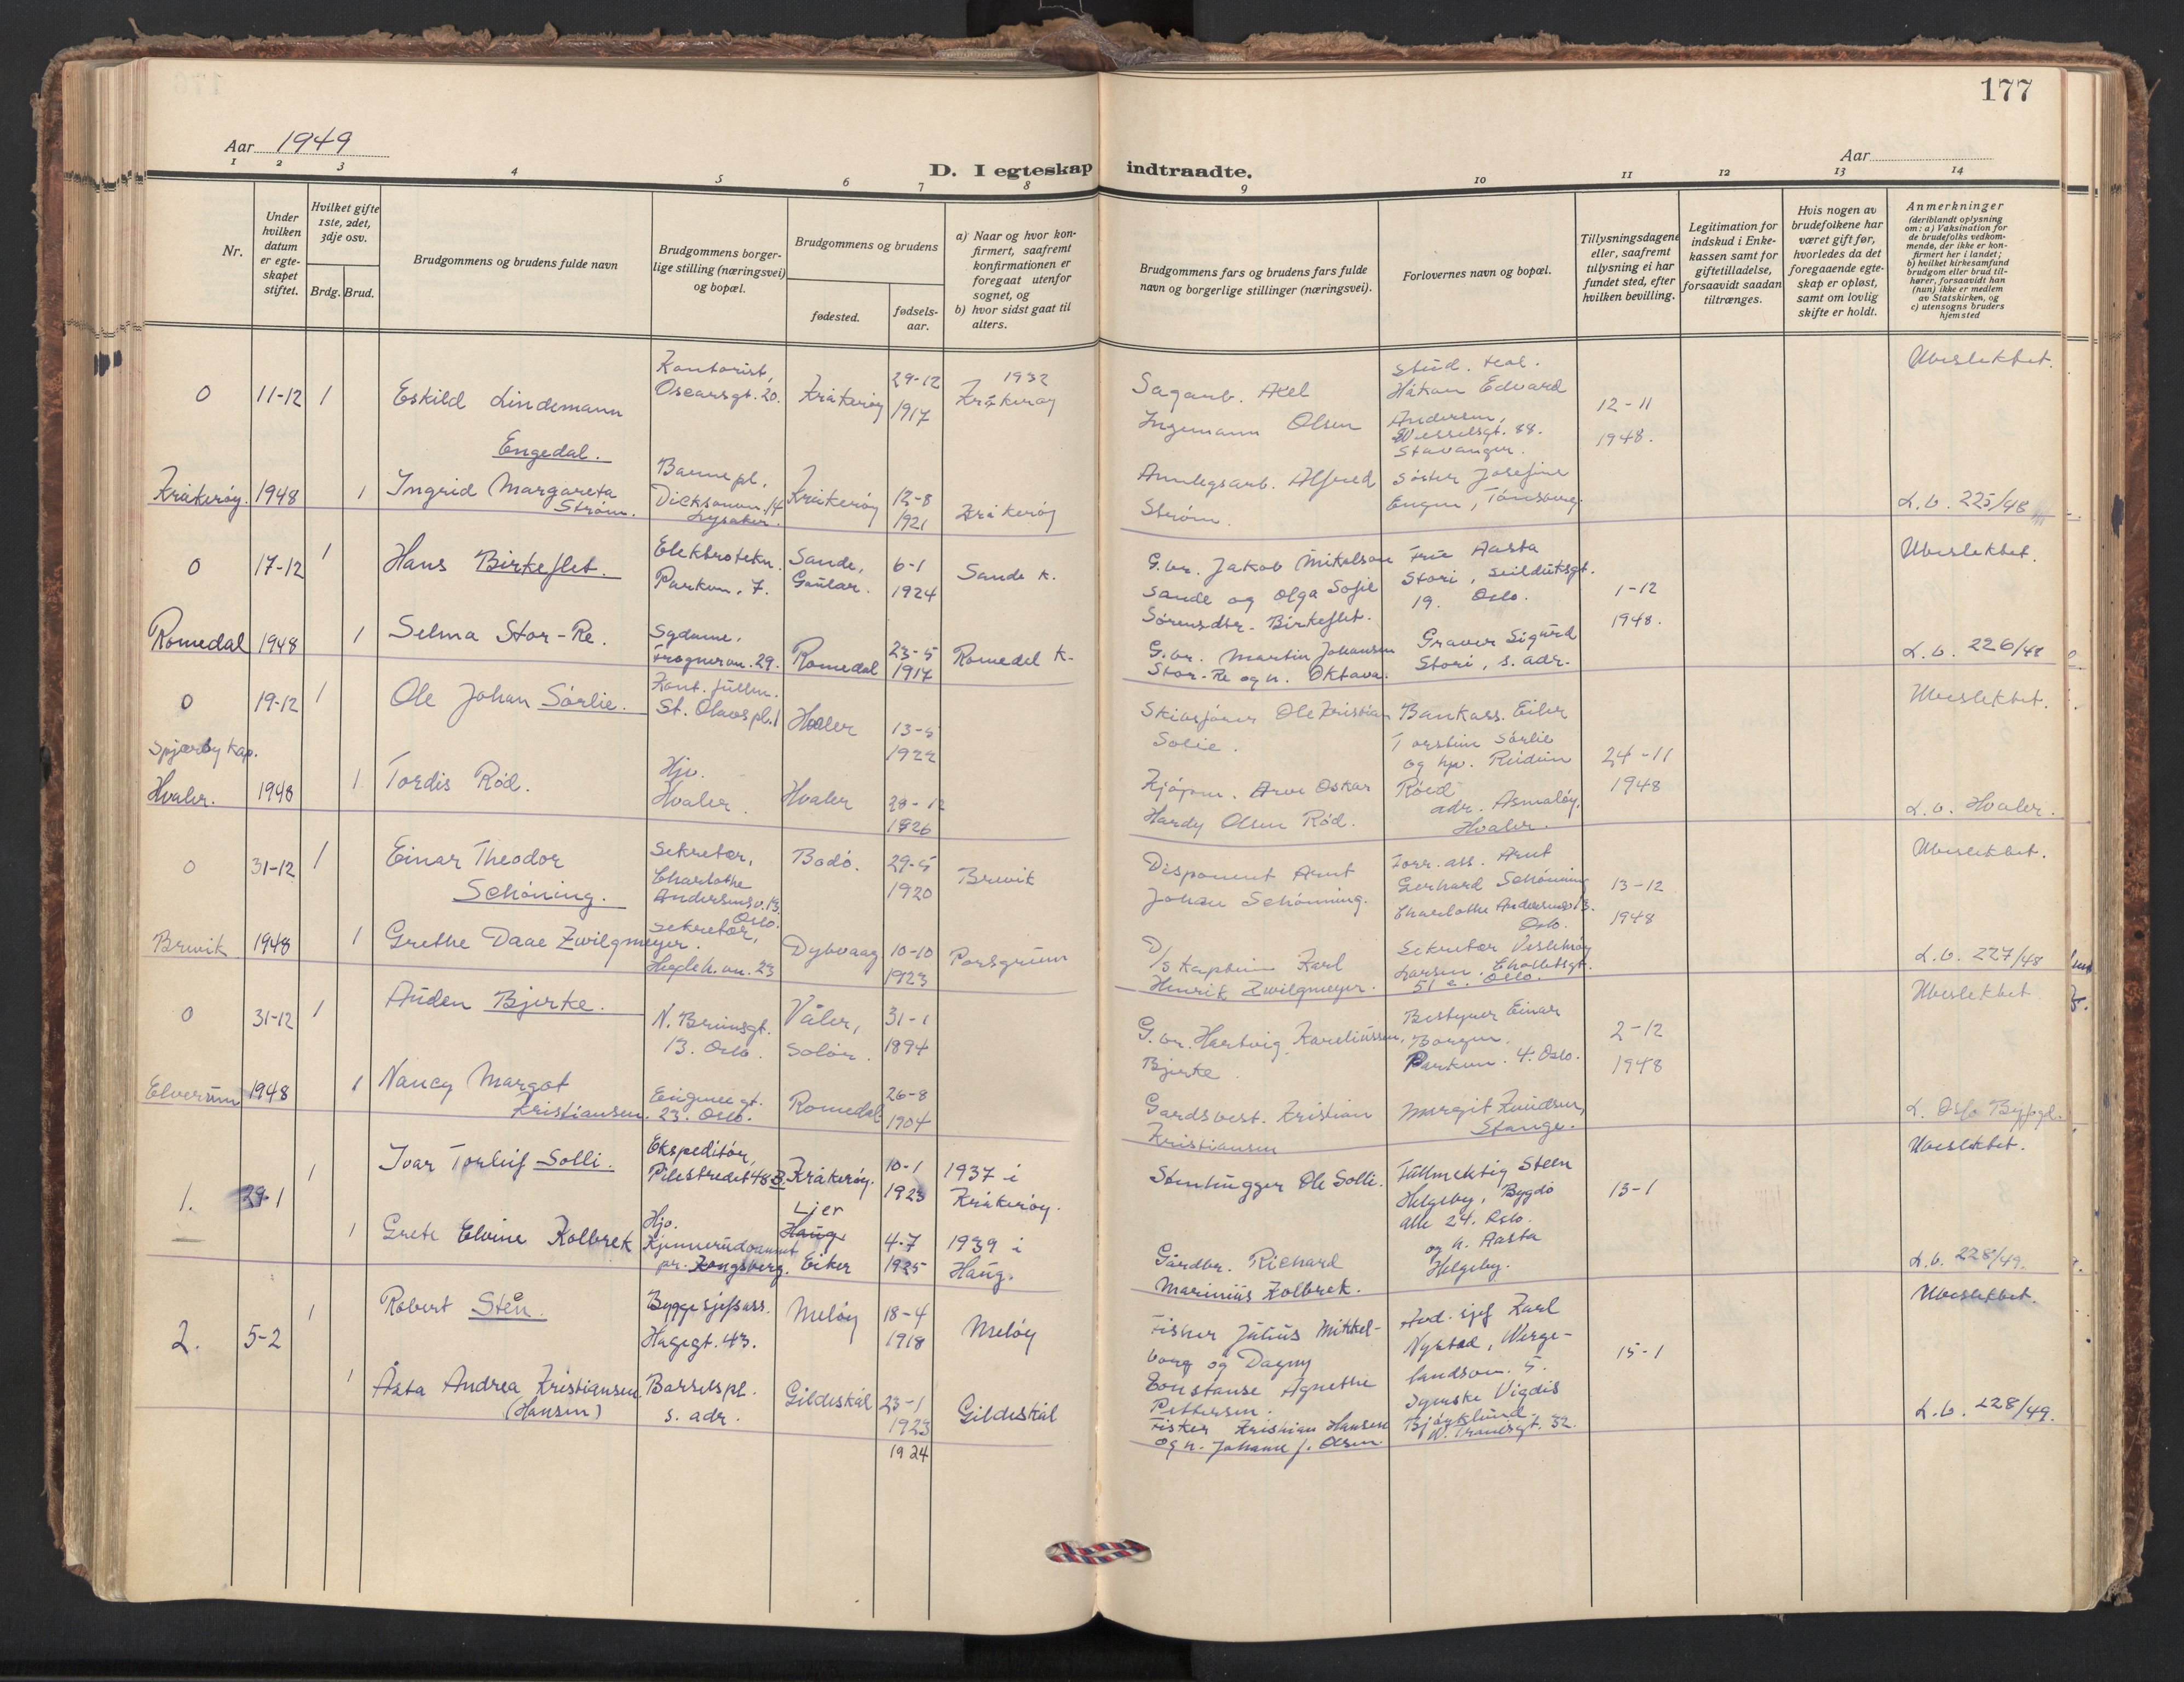 177
Aar 1949
Aar
D. I egteskap indtraadte.
1 2 3 4 5 6 7 8 9 10 11 12 13 14
Nr.
Under hvilken datum er egteskapet stiftet.
Hvilket gifte 1ste, 2det, 3dje osv.
Brdg. Brud.
Brudgommens og brudens fulde navn
Brudgommens borgerlige stilling (næringsvei) og bopæl.
Brudgommens og brudens
fødested.
fødselsaar.
a) Naar og hvor konfirmert, saafremt konfirmationen er foregaat utenfor sognet, og
b) hvor sidst gaat til alters.
Brudgommens fars og brudens fars fulde navn og borgerlige stillinger (næringsvei).
Forlovernes navn og bopæl.
Tillysningsdagene eller, saafremt tillysning ei har fundet sted, efter hvilken bevilling.
Legitimation for indskud i Enkekassen samt for giftetilladelse, forsaavidt saadan tiltrænges.
Hvis nogen av brudefolkene har været gift før, hvorledes da det foregaaende egteskap er opløst, samt om lovlig skifte er holdt.
Anmerkninger
(deriblandt oplysning om: a) Vaksination for de brudefolks vedkommende, der ikke er konfirmert her i landet;
b) hvilket kirkesamfund brudgom eller brud tilhører, forsaavidt han (hun) ikke er medlem av Statskirken, og
c) utensogns bruders hjemsted
0 11-12 1 Eskild Lindemann Engedal.
Kontorist, Oscarsgt. 20.
Kråkerøy 29-12 1917
1932 Kråkerøy
Sagarb. Axel Ingemann Olsen
stud. real. Håkon Edvard Andersen, Wesselsgt. 88. Stavanger.
12-11 1948.
Ubeslektet.
Kråkerøy. 1948 1 Ingrid Margareta Strøm.
Barnepl. Dicksonsv. 14 Lysaker.
Kråkerøy 12-8 1921 Kråkerøy
Anlegsarb. Alfred Strøm.
Søster Josefine Engen, Tønsberg.
L.b. 225/48
0 17-12 1 Hans Birkeflet.
Elektrotekn. Parkvn. 7.
Sande, Gaular. 6-1 1924 Sande k.
G.br. Jakob Mikelson Sande og Olga Sofie Sørensdtr. Birkeflet.
Frue Aasta Stori, Seilduksgt. 19. Oslo.
1-12 1948.
Ubeslektet.
Romedal 1948 1 Selma Stor-Re.
Sydame. Frognervn. 29.
Romedal 23-5 1917 Romedal k.
G.br. Martin Johansen Stor-Re og h. Oktava.
Graver Sigurd Stori, s. adr.
L.b. 226/48
0 19-12 1 Ole Johan Sørlie.
Kont. fullm. St. Olavs pl. 1
Hvaler 13-5 1922
Skibsfører Ole Kristian Solie.
Bankass. Eiler Torstein Sørlie og hp. Reidun Røed adr. Asmaløy, Hvaler.
24-11 1948
Ubeslektet.
Spjærøy kap. Hvaler. 1948 1 Tordis Rød.
Hjv. Hvaler.
Hvaler 28-12 1926
Kjøpm. Arve Oskar Hardy Olsen Rød.
L.b. Hvaler.
0 31-12 1 Einar Theodor Schøning.
Sekretær, Charlotte Andersensv. 13. Oslo.
Bodø. 29-5 1920 Brevik
Disponent Arnt Johan Schønning.
Forr. ass. Arnt Gerhard Schønning Charlotte Andersensv. 13. Oslo.
13-12 1948
Ubeslektet.
Brevik 1948 1 Grethe Daae Zwilgmeyer.
Sekretær, Hegdeh.vn. 23
Dybvaag 10-10 1923 Porsgrunn
D/s Kaptein Karl Henrik Zwilgmeyer.
Sekretær Veslemøy Larsen. 51 e. Oslo.
L.b. 227/48
0 31-12 1 Auden Bjerke.
N. Brunsgt. 13. Oslo.
Våler, Solør. 31-1 1894
G.br. Hartvig Kareliussen, Bjerke.
Bestyrer Einar Borgen. Parkvn. 4. Oslo.
2-12 1948
Ubeslektet
Elverum 1948 1 Nancy Margot Kristiansen.
23. Oslo.
Romedal 26-8 1904
Gardsbest. Kristian Kristiansen
Margit Knudsen, Stange.
L. Oslo Bypgl.
1. 29-1 1 Ivar Torleif Solli.
Ekspeditør, Pilestredet 48 B.
Kråkerøy. 10-1 1923
1937 i Kråkerøy.
Stenhugger Ole Solli.
Fullmektig Steen Helgeby, Bygdø alle 24. Oslo. og h. Aasta Helgeby.
13-1
Ubeslektet.
1 Grete Elvine Kolbrek
Hjv. Kjennerudvannet pr. Kongsberg.
Lier Haug. Eiker 4-7 1925
1939 i Haug.
Gårdbr. Richard Marinius Kolbrek.
L.b. 228/49.
2. 5-2 1 Robert Stén.
Byggesjefsass. Hagegt. 43.
Meløy 18-4 1918 Meløy
Fisker Julius Mikkelborg og Dagny Constanse Agnethe Pettersen.
Avd. sjef Karl Nystad, Wergelandsvn. 5.
15-1
Ubeslektet.
1 Åsta Andrea Kristiansen (Hansen)
Barselspl. s. adr.
Gildeskål 23-1 1923 1924 Gildeskål
Fisker Kristian Hansen og h. Johanne J. Olsen.
Vigdis Bjørklund. 32.
L.b. 228/49.